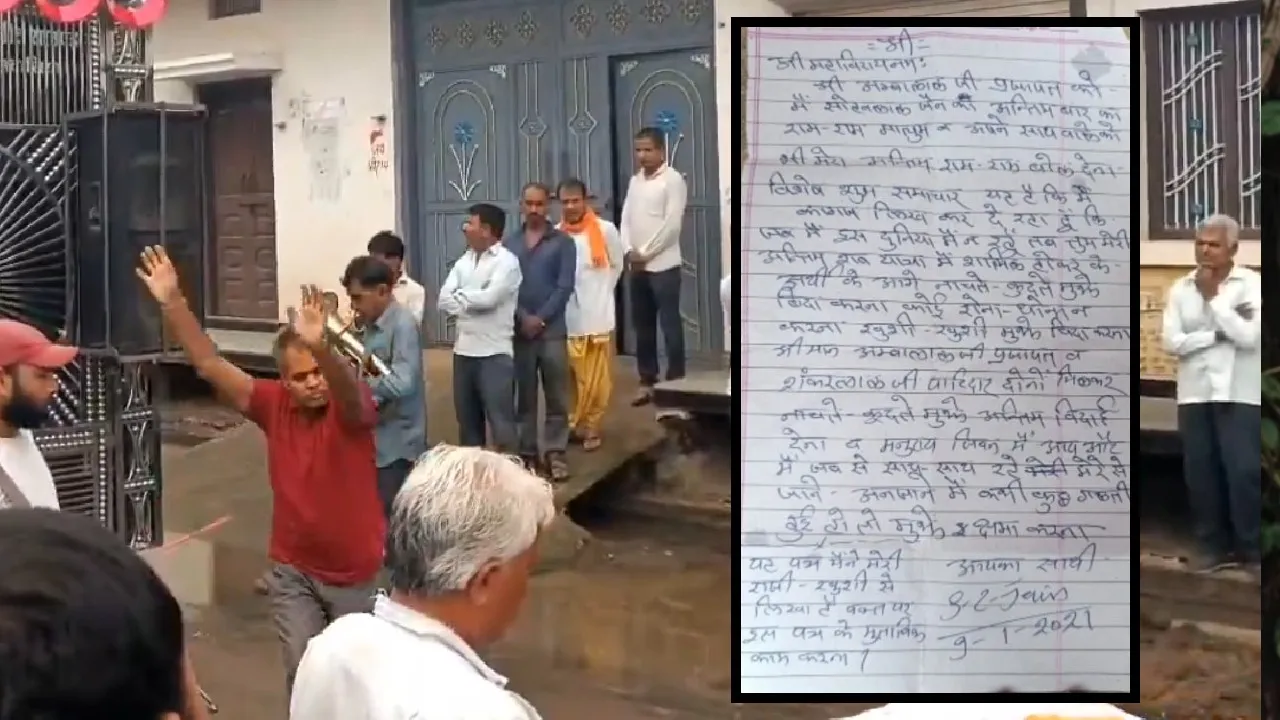 = श्री =
श्री महावीरायनमः
श्री अम्बालाल जी प्रजापत को-
मैं सोहनलाल जैन की अन्तिम बार का
राम-राम मालुम व अपने साथ वालो को
भी मेरा अन्तिम राम-राम बोल देना-
विशेष शुभ समाचार यह है कि मैं
कागज लिख कर दे रहा हूं कि
जब मैं इस दुनिया में न रहूं तब तुम मेरी
अन्तिम शव यात्रा में शामिल होकर के-
अर्थी के आगे नाचते-कुदते मुझे
विदा करना कोई रोना-धोना न
करना खुशी-खुशी मुझे विदा करना
श्रीमान अम्बालाल जी प्रजापत व
शंकरलाल जी पाटिदार दोनों मिलकर
नाचते-कुदते मुझे अन्तिम विदाई
देना व मनुष्य जिवन में आप और
मैं जब से साथ-साथ रहे मेरे से
जाने-अनजाने में कभी कुछ गलती
हुई हो तो मुझे क्षमा करना
यह पत्र मैंने मेरी
राजी-खुशी से
लिखा है वक्त पर
इस पत्र के मुताबिक
काम करना।
आपका साथी
S.L. Jain
9-1-2021